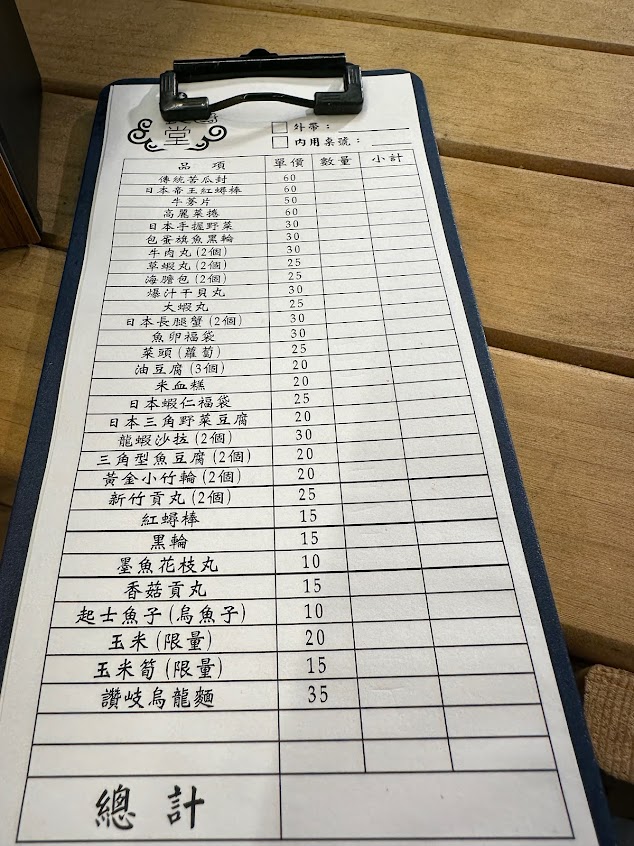 堂
外帶：
內用桌號：
品項 單價 數量 小計
傳統苦瓜封 60
日本帝王紅蟳棒 60
牛蒡片 50
高麗菜捲 60
日本手握野菜 30
包蛋旗魚黑輪 30
牛肉丸(2個) 30
草蝦丸(2個) 25
海膽包(2個) 25
爆汁干貝丸 30
大蝦丸 25
日本長腿蟹(2個) 30
魚卵福袋 30
菜頭(蘿蔔) 25
油豆腐(3個) 20
米血糕 20
日本蝦仁福袋 25
日本三角野菜豆腐 20
龍蝦沙拉(2個) 30
三角型魚豆腐(2個) 20
黃金小竹輪(2個) 20
新竹貢丸(2個) 25
紅蟳棒 15
黑輪 15
墨魚花枝丸 10
香菇貢丸 15
起士魚子(烏魚子) 10
玉米(限量) 20
玉米筍(限量) 15
讚岐烏龍麵 35
總計